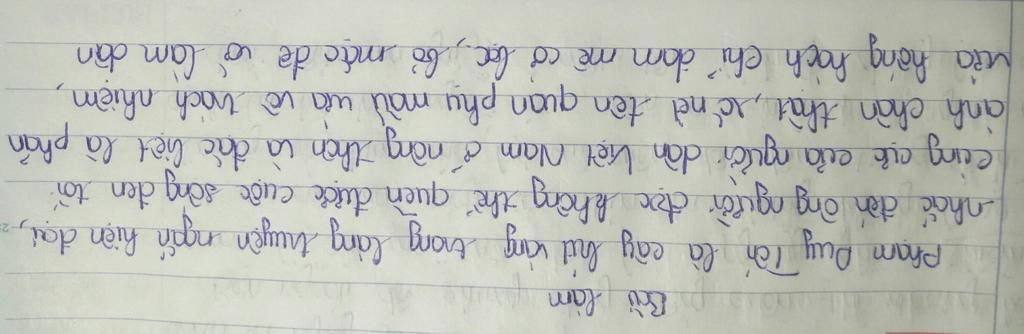 Bài làm
Phạm Duy Tốn là cây bút vàng trong làng truyện ngắn hiện đại,
nhắc đến ông người đọc không thể quên được cuộc sống đen tối
cùng cực của người dân Việt Nam ở nông thôn và đặc biệt là phản
ánh chân thật, rõ nét tên quan phụ mẫu vừa vô trách nhiệm,
vừa hống hách chỉ đam mê cờ bạc, bỏ mặc đê vỡ làm dân